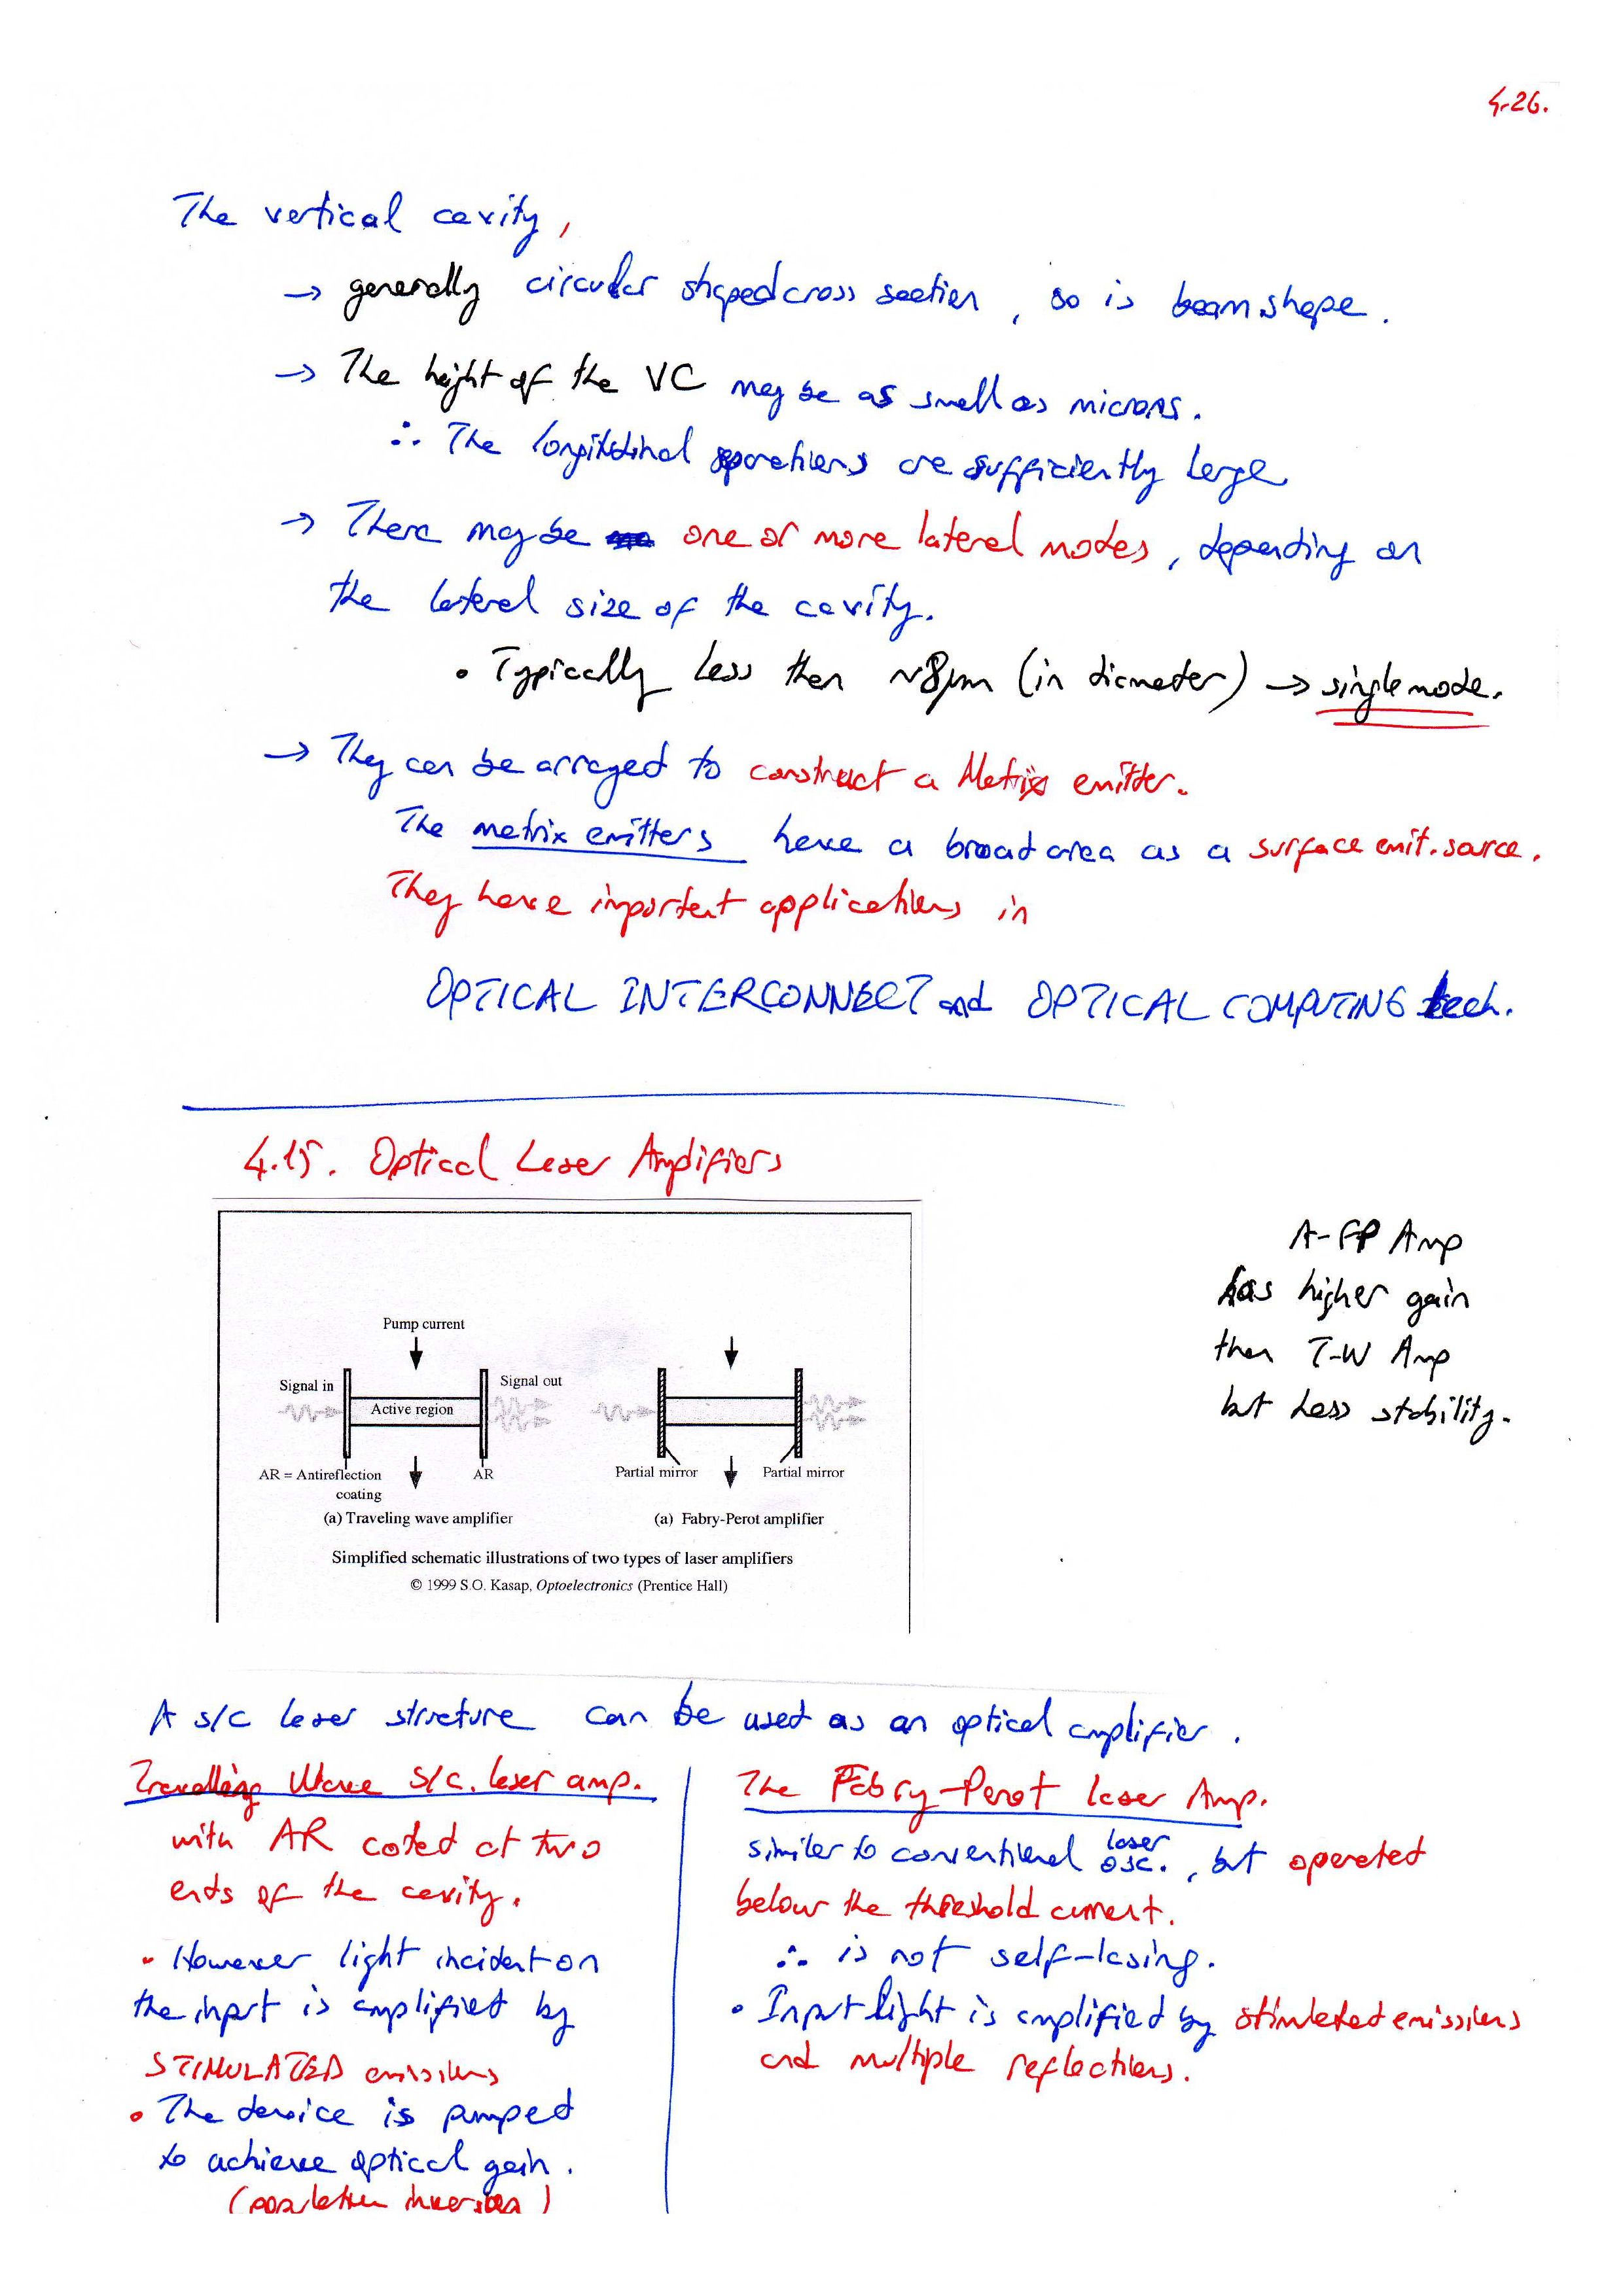 4-26.
The vertical cavity,
→ generally circular shaped cross section, so is beam shape.
→ The height of the VC may be as small as microns.
∴ The longitidinal separations are sufficiently large
→ There may be one or more lateral modes, depending on
the lateral size of the cavity.
• Typically less then ~8μm (in diameter) → single mode.
→ They can be arraged to construct a Matrix emitter.
The matrix emitters have a broad area as a surface emit. source.
They have important applications in
OPTICAL INTERCONNECT and OPTICAL COMPUTING tech.
4.15. Optical Laser Amplifiers
A-FP Amp
has higher gain
then T-W Amp
but Less stability.
Pump current
Signal in
Signal out
Active region
AR = Antireflection
coating
AR
Partial mirror
Partial mirror
(a) Traveling wave amplifier
(a) Fabry-Perot amplifier
Simplified schematic illustrations of two types of laser amplifiers
© 1999 S.O. Kasap, Optoelectronics (Prentice Hall)
A s/c laser structure can be used as an optical amplifier.
Travelling Wave s/c. laser amp.
with AR coated at two
ends of the cavity.
• However light incident on
the input is amplified by
STIMULATED emissions
• The device is pumped
to achieve optical gain.
(population inversion)
The Fabry-Perot laser Amp.
similar to conventional laser osc., but operated
below the threshold current.
∴ is not self-lasing.
• Input light is amplified by stimulated emissions
and multiple reflections.